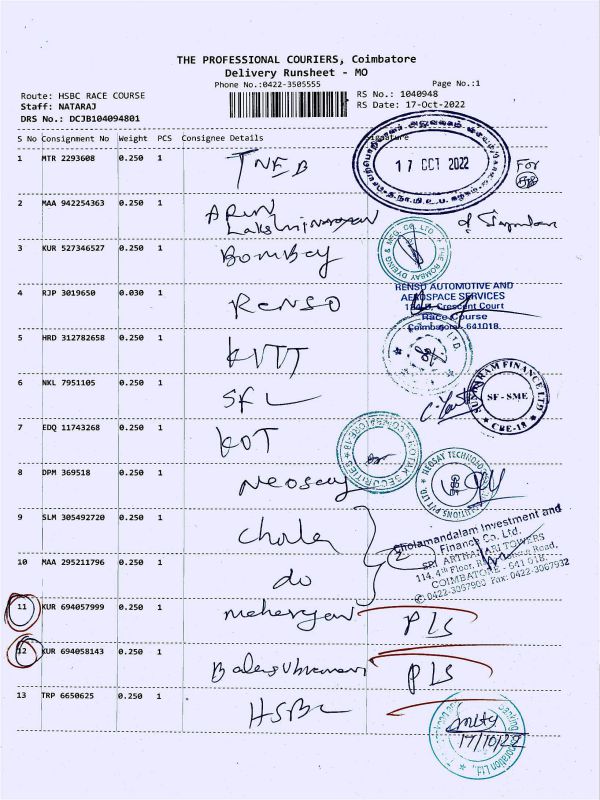 THE PROFESSIONAL COURIERS, Coimbatore
Delivery Runsheet - MO
Phone No.:0422-3505555
Page No.:1
Route: HSBC RACE COURSE
RS No.: 1040948
Staff: NATARAJ
RS Date: 17-Oct-2022
DRS No.: DCJB104094801
S No Consignment No Weight PCS Consignee Details
1 MTR 2293608 0.250 1 TNEB
17 OCT 2022
For
2 MAA 942254363 0.250 1 ARUN
Lakshminarayan
3 KUR 527346527 0.250 1 Bombay
THE BOMBAY DYEING & MFG. CO. LTD
4 RJP 3019650 0.030 1 RENSO
RENSO AUTOMOTIVE AND
AEROSPACE SERVICES
Crescent Court
Race Course
Coimbatore - 641018.
5 HRD 312782658 0.250 1 KVTT
6 NKL 7951105 0.250 1 SFL
SUNDARAM FINANCE LTD
SF - SME
CBE-18
7 EDQ 11743268 0.250 1 KOT
KOTAK SECURITIES
8 DPM 369518 0.250 1 Neosay
NEOSAY TECHNOLOGY SOLUTIONS PVT LTD
9 SLM 305492720 0.250 1 Chola
2
Cholamandalam Investment and
Finance Co. Ltd.
SRI ARTHANARI TOWERS
114, 4th Floor, Race Course Road,
COIMBATORE - 641 018.
0422-3067900 Fax: 0422-3067932
10 MAA 295211796 0.250 1 do
11 KUR 694057999 0.250 1
PLS
12 KUR 694058143 0.250 1 Balasubramani
PLS
13 TRP 6650625 0.250 1 HSBC
17/10/22